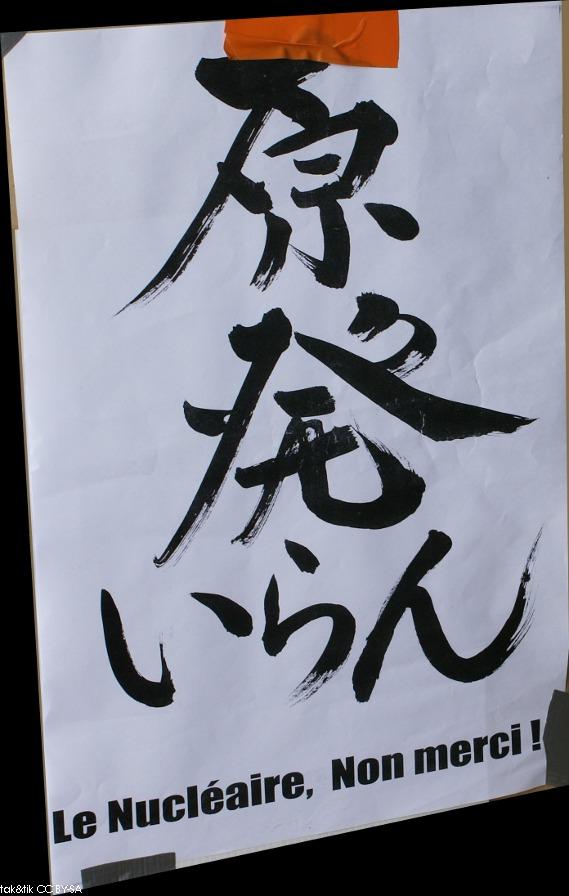 原
発
いらん
Le Nucléaire, Non merci !
tak&tik CC:BY-SA